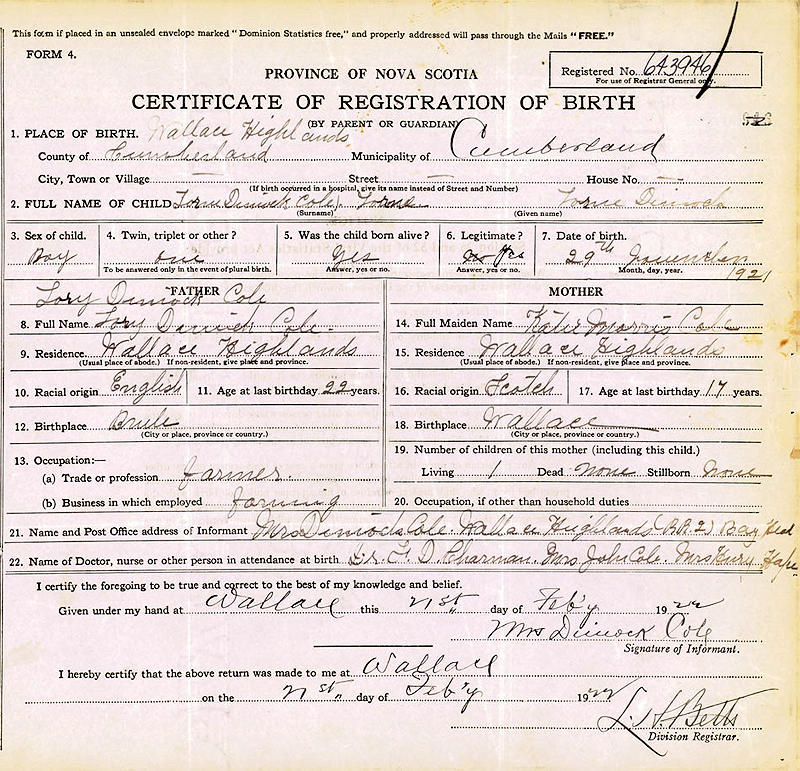 This form if placed in an unsealed envelope marked "Dominion Statistics free," and properly addressed will pass through the Mails "FREE."
FORM 4.
Registered No. 643946
For use of Registrar General only.
PROVINCE OF NOVA SCOTIA
CERTIFICATE OF REGISTRATION OF BIRTH
(BY PARENT OR GUARDIAN)
1. PLACE OF BIRTH. Wallace Highlands
County of Cumberland Municipality of Cumberland
City, Town or Village — Street — House No. —
(If birth occurred in a hospital, give its name instead of Street and Number)
2. FULL NAME OF CHILD Lorne Dimock Cole Lorne Lorne Dimock
(Surname) (Given name)
3. Sex of child. 4. Twin, triplet or other? 5. Was the child born alive? 6. Legitimate? 7. Date of birth.
Boy one Yes no Yes 29th
To be answered only in the event of plural birth. Answer, yes or no. Answer, yes or no. Month, day, year. 1921
FATHER MOTHER
Dimock Cole
8. Full Name Dimock Cole 14. Full Maiden Name Katie Morris Cole
9. Residence Wallace Highlands 15. Residence Wallace Highlands
(Usual place of abode.) If non-resident, give place and province. (Usual place of abode.) If non-resident, give place and province.
10. Racial origin English 11. Age at last birthday 22 years. 16. Racial origin Scotch 17. Age at last birthday 17 years.
12. Birthplace Brule 18. Birthplace Wallace
(City or place, province or country.) (City or place, province or country.)
13. Occupation:— 19. Number of children of this mother (including this child.)
(a) Trade or profession farmer. Living 1 Dead none Stillborn none
(b) Business in which employed farming 20. Occupation, if other than household duties
21. Name and Post Office address of Informant Mrs Dimock Cole Wallace Highlands (RR2) Bay Head
22. Name of Doctor, nurse or other person in attendance at birth Dr. D. Mrs John Cole Mrs
I certify the foregoing to be true and correct to the best of my knowledge and belief.
Given under my hand at Wallace this 21st day of Feb'y 1922
Mrs Dimock Cole
Signature of Informant.
I hereby certify that the above return was made to me at Wallace
on the 21st day of Feb'y 1922
L. H. Betts
Division Registrar.